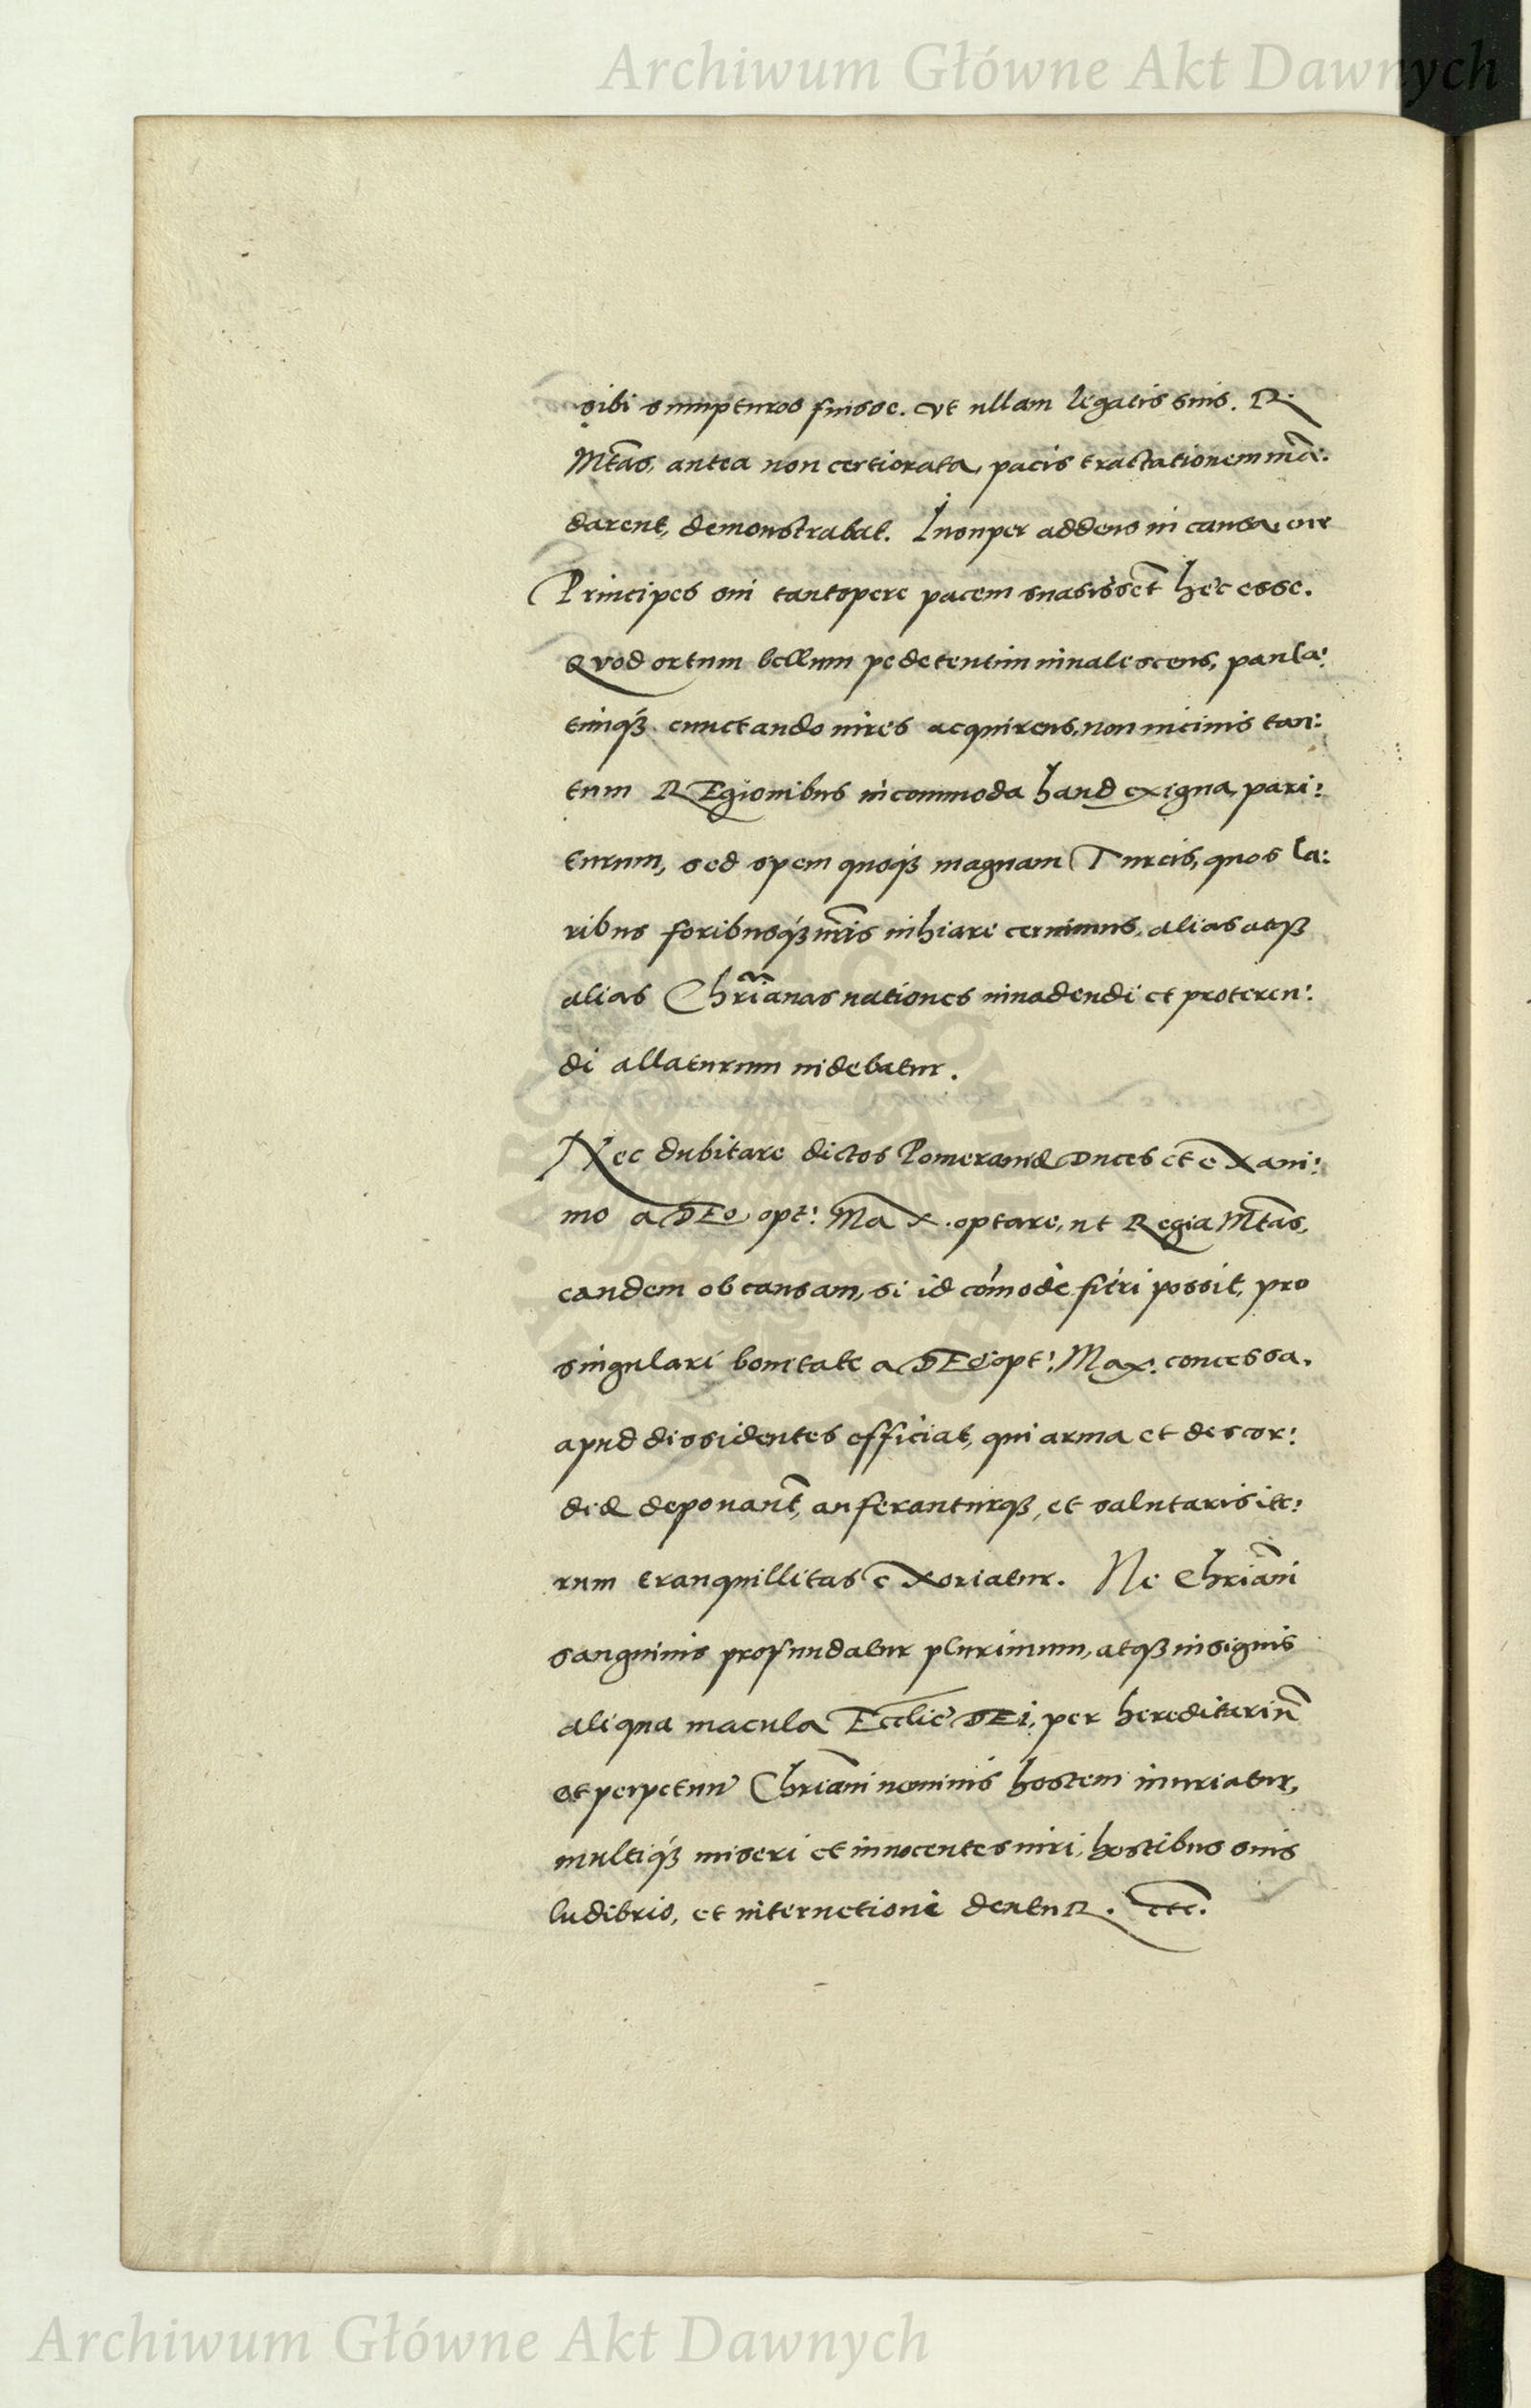 Archiwum Główne Akt Dawnych
sibi sumpturos fuisse. Vt ullam legatis suis. R.
Mtas, antea non certiorata, pacis tractationem mā:
darent, demonstrabat. Insuper addens in causa, cur
Principes sui tantopere pacem suasissēt hec esse.
Quod ortum bellum pedetentim inualescens, paula:
timq3 cunctando uires acquirens, non uicinis tan:
tum REgionibus incommoda haud exigua, pari:
turum, sed spem quoq3 magnam Turcis, quos la:
ribus foribusq3 nr̄is inhiare cernimus, alias atq3
alias Chrīanas nationes inuadendi et proteren:
di allaturum uidebatur.
Nec dubitare dictos Pomeraniæ Duces et eX ani:
mo a DEo opt: MaX. optare, ut Regia Mtas,
eandem ob causam, si id cōmodè fieri possit, pro
singulari bonitate a DEo opt: Max: concessa.
apud dissidentes efficiat, qui arma et descor:
diæ deponant, auferanturq3, et salutaris ite:
rum tranquillitas eXoriatur. Ne Chrīani
sanguinis profundatur plurimum, atq3 insignis
aliqua macula Ecclīe DEi, per hereditariū
et perpetuū Chrīani nominis hostem inuriatur,
multiq3 miseri et innocentes uiri, hostibus suis
ludibrio, et internetioni dentuR. etc.
ARCHIWUM GŁÓWNE AKT DAWNYCH
Archiwum Główne Akt Dawnych